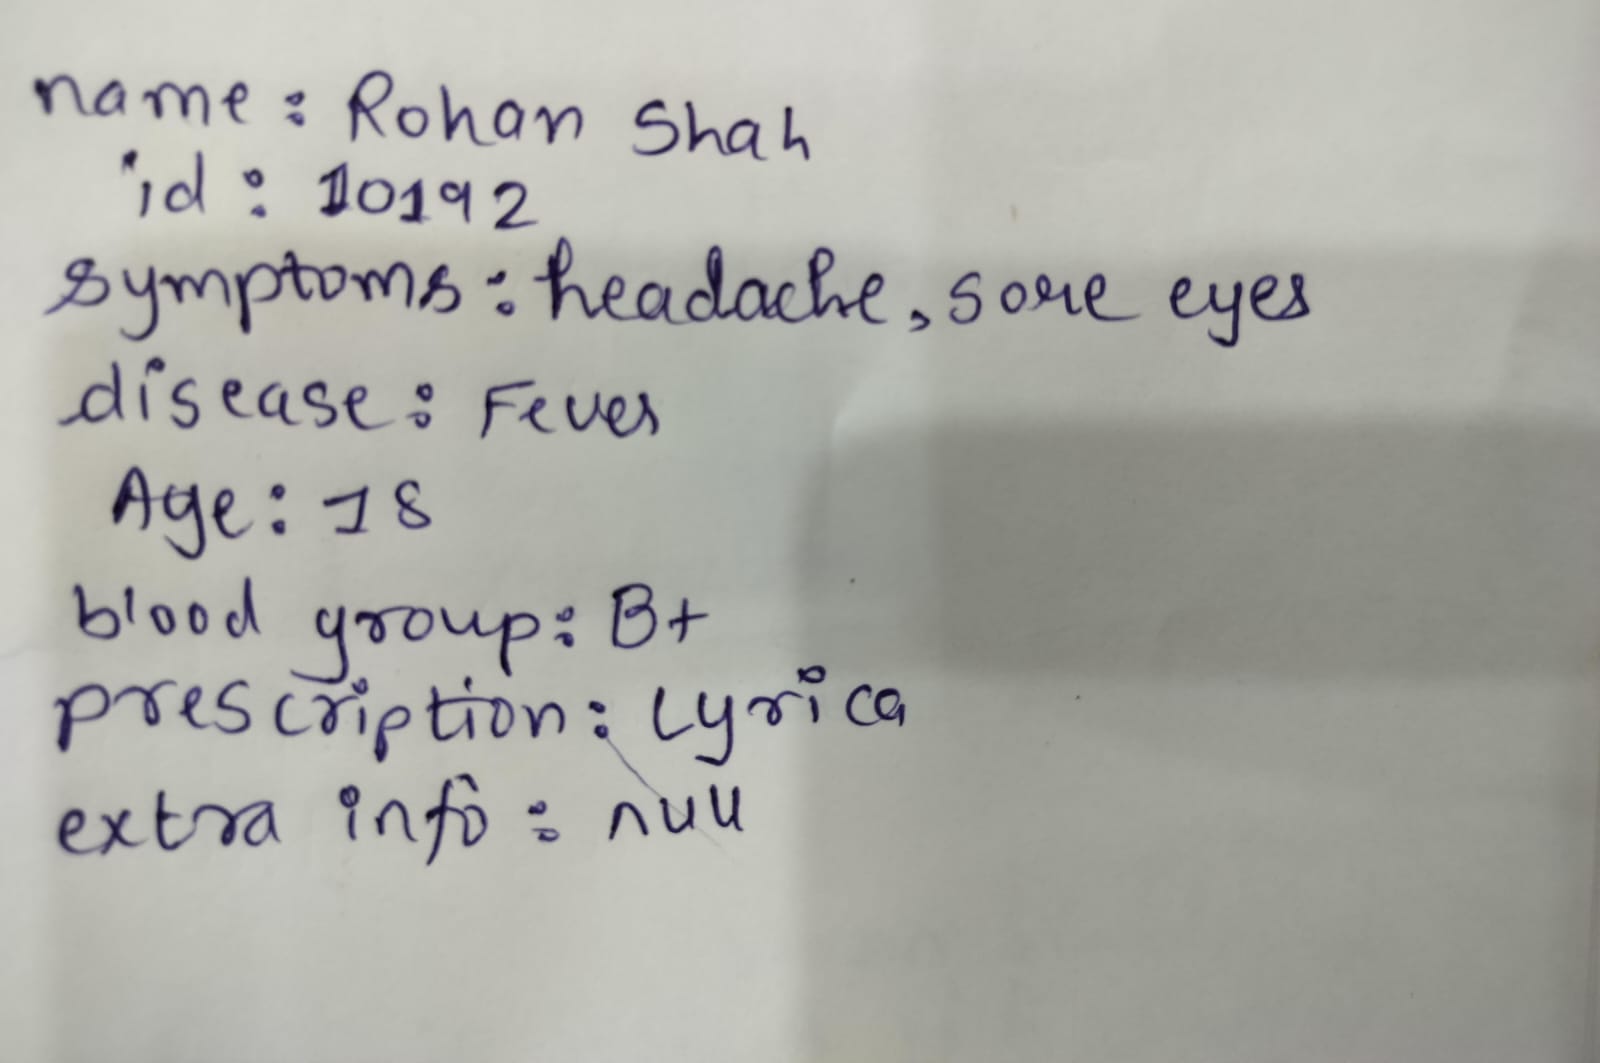 name: Rohan Shah
id: 10192
symptoms: headache, sore eyes
disease: Fever
Age: 18
blood group: B+
prescription: Lyrica
extra info: null